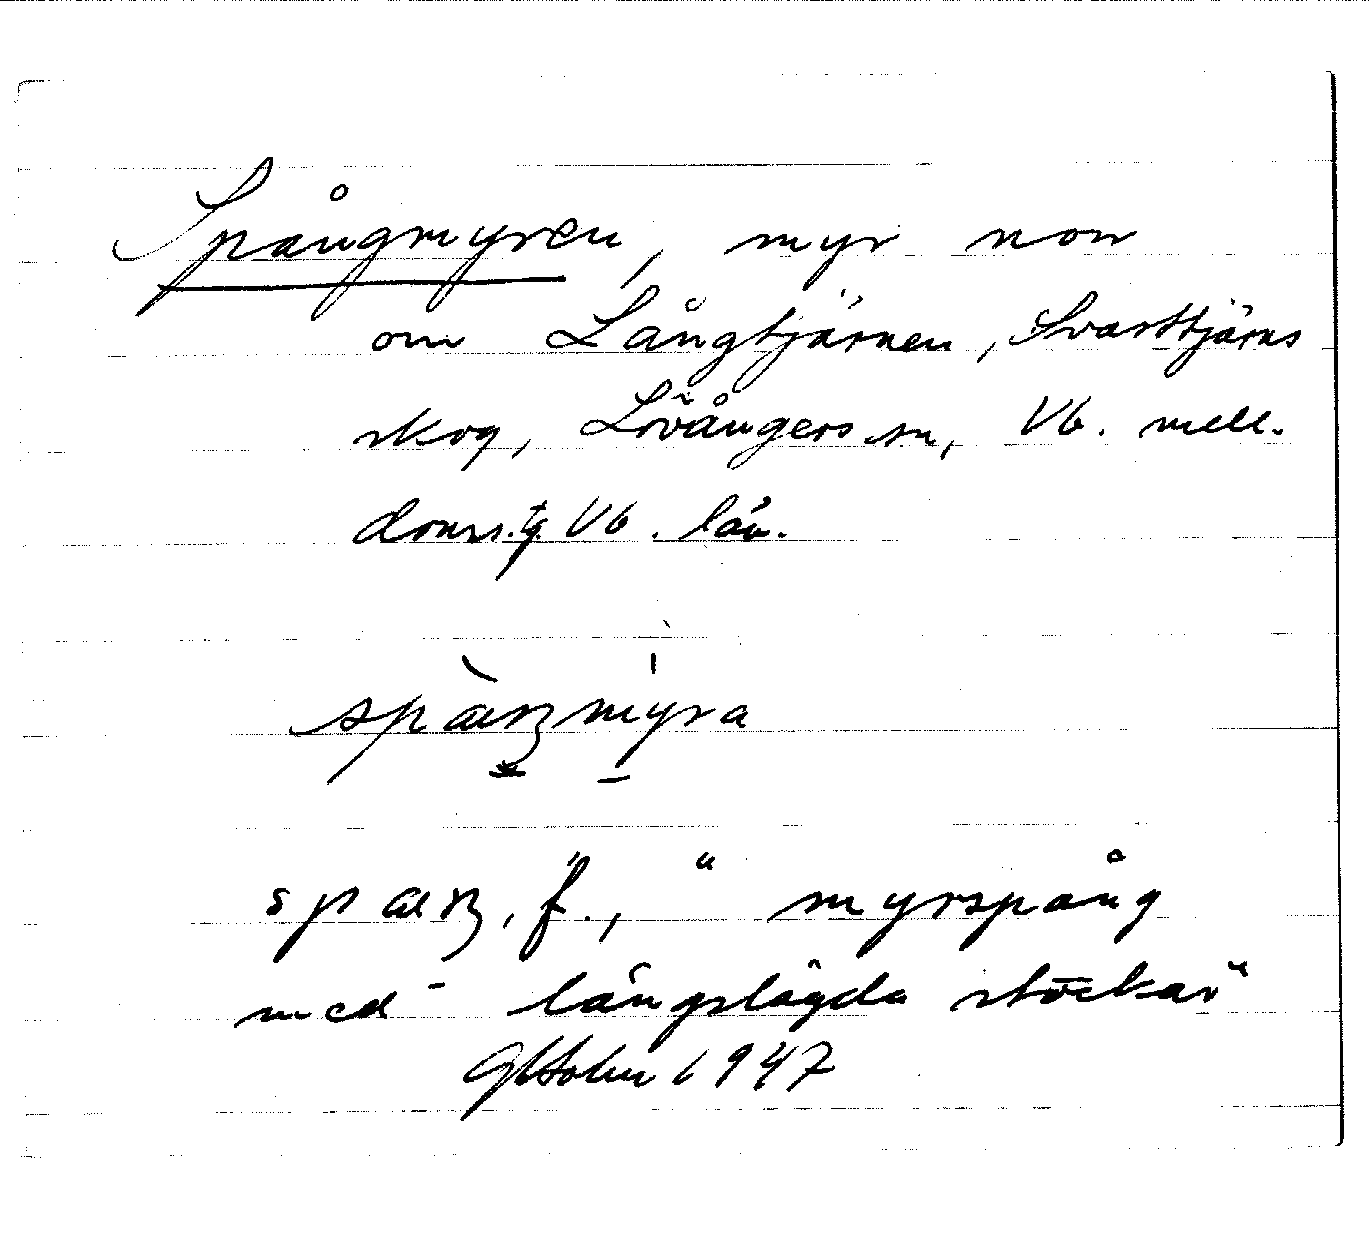 Spångmyren, myr norr
om Långtjärnen, Svarttjärns
skog, Lövångers sn, Vb. mell.
doms.tg. Vb. län.
spàŋmyra
spaŋ, f., "myrspång
med långslagda stockar"
Oktober 1947